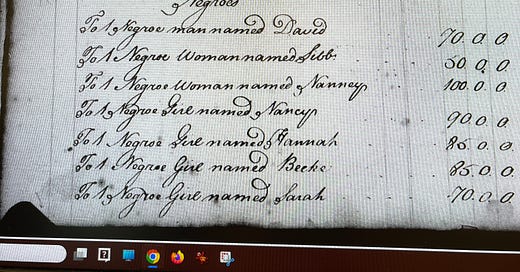 Negroes
To 1 Negroe man named David 70.0.0
To 1 Negroe Woman named Sibb 50.0.0
To 1 Negroe Woman named Nanney 100.0.0
To 1 Negroe Girl named Nancy 90.0.0
To 1 Negroe Girl named Hannah 85.0.0
To 1 Negroe Girl named Becke 85.0.0
To 1 Negroe Girl named Sarah 70.0.0